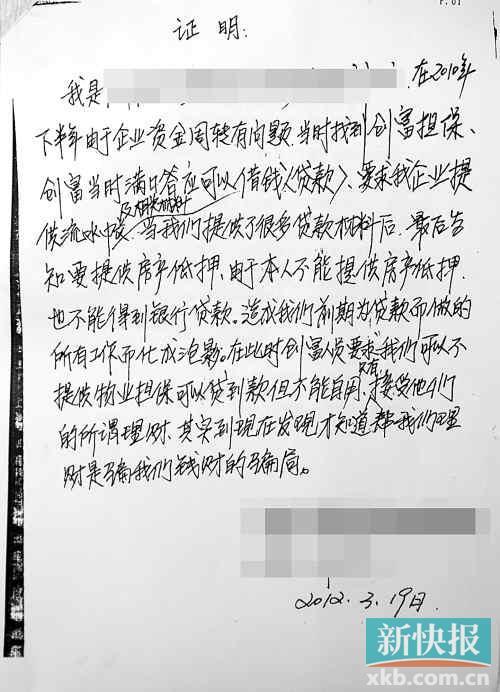 P.01
证明:
我是
.在2010年
下半年由于企业资金周转有问题.当时找到创富担保、
创富当时满口答应可以借钱(贷款)、要求我企业提
及相关材料
供流水中
当我们提供了很多贷款材料后.最后告
知要提供房产低押.由于本人不能提供房产低押.
也不能得到银行贷款。造成我们前期为贷款而做的
所有工作而化成泡影。在此时创富人员要求我们可以不
只有
提供物业担保可以贷到款但不能自用.接受他们
的所谓理财.其实到现在发现才知道帮我们理
财是骗我们钱财的骗局。
2012.3.19日.
新快报
xkb.com.cn